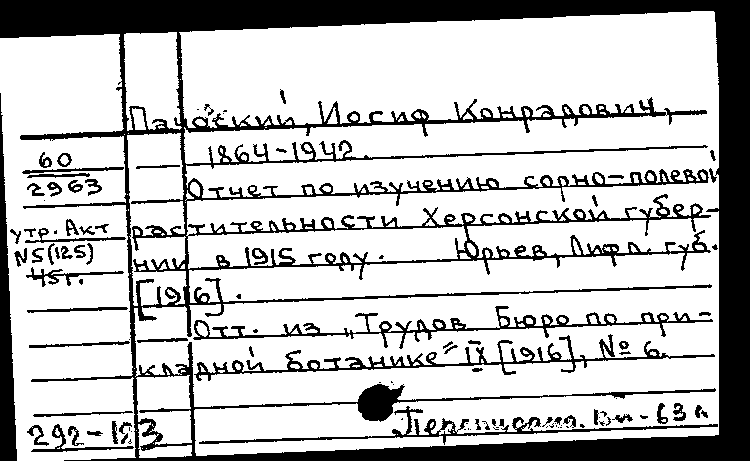 Пачоский, Иосиф Конрадович,
1864-1942.
60
2963
Отчет по изучению сорно-полевой
утр. Акт
растительности Херсонской губер-
N5(125)
нии в 1915 году. Юрьев, Лифл. губ.
45г.
[1916].
Отт. из „Трудов Бюро по при-
кладной ботанике" IX [1916], № 6.
292-123